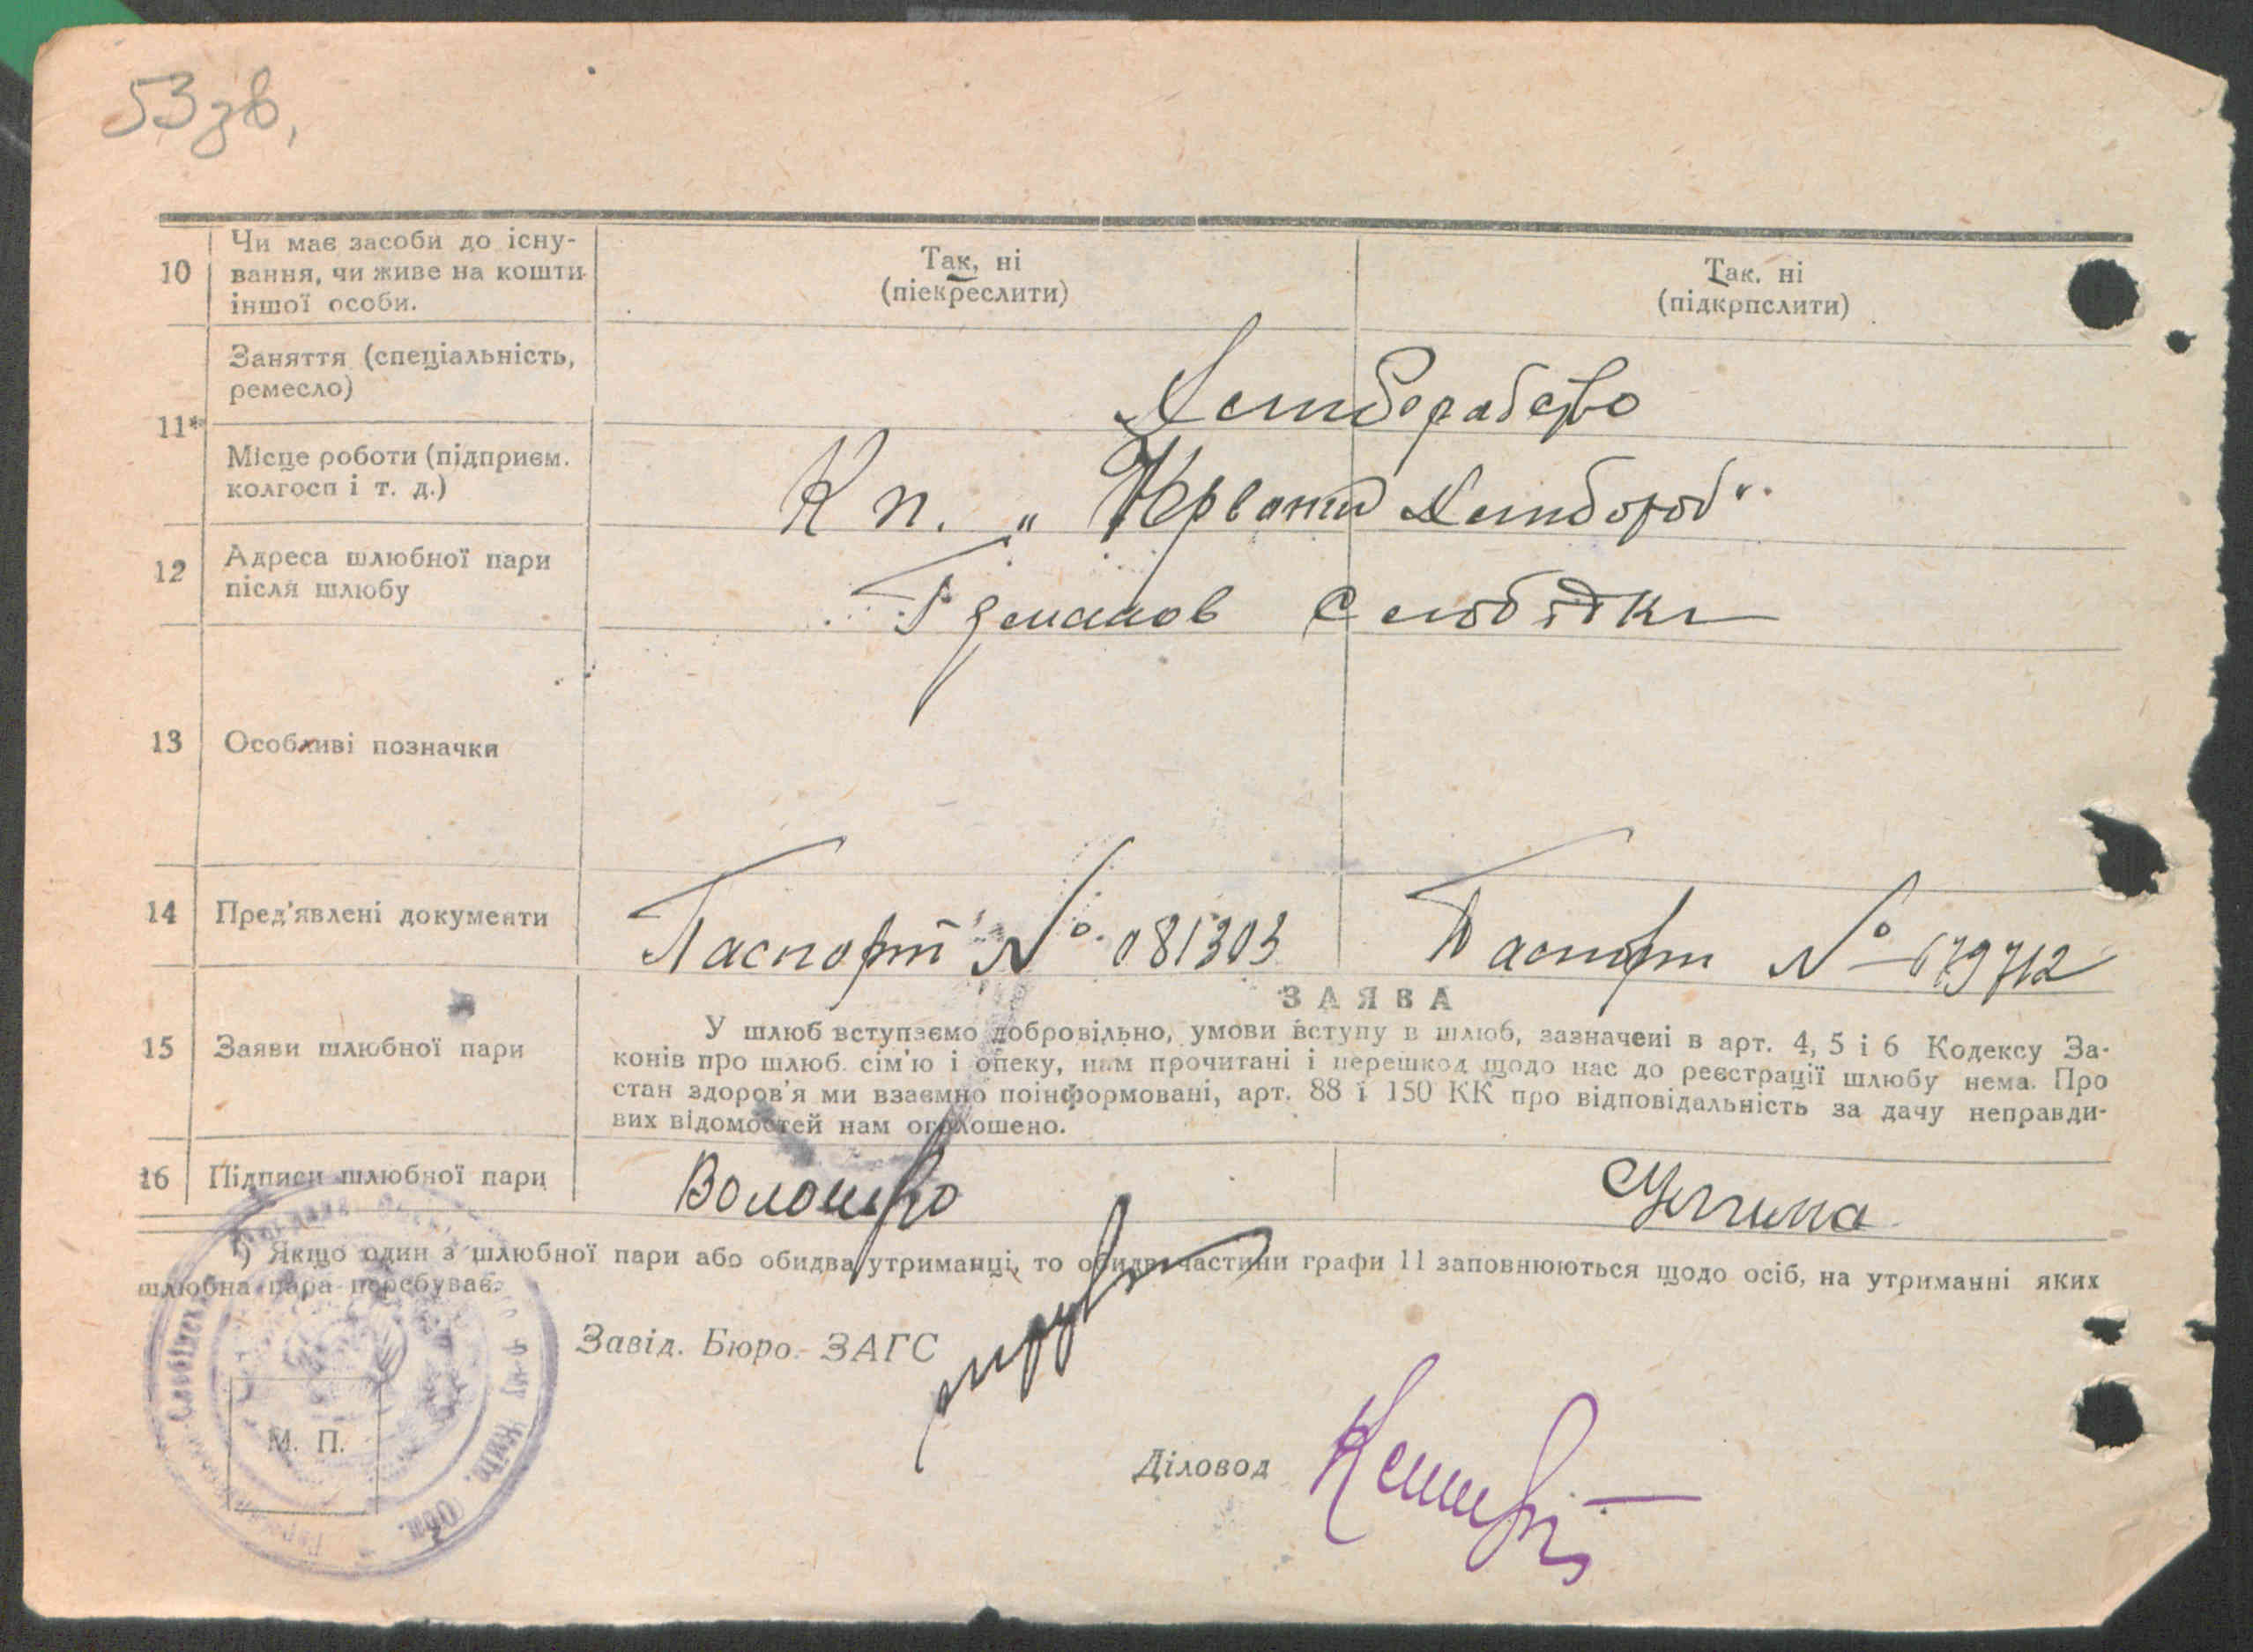 53 зв,
10 Чи має засоби до існу-
вання, чи живе на кошти
іншої особи.
Так, ні
(піекреслити)
Так. ні
(підкрпслити)
11*
Заняття (спеціальність,
ремесло)
Місце роботи (підприєм.
колгосп і т. д.)
К п. „ Червоний Хлібороб"
12 Адреса шлюбної пари
після шлюбу
Слобідка
13 Особливі позначки
14 Пред'явлені документи
Паспорт № 081303
Паспорт № 679712
15 Заяви шлюбної пари
ЗАЯВА
У шлюб вступаємо добровільно, умови вступу в шлюб, зазначені в арт. 4, 5 і 6 Кодексу За-
конів про шлюб. сім'ю і опеку, нам прочитані і перешкод щодо нас до реєстрації шлюбу нема. Про
стан здоров'я ми взаємно поінформовані, арт. 88 і 150 КК про відповідальність за дачу неправди-
вих відомостей нам оголошено.
16 Підписи шлюбної пари
*) Якщо один з шлюбної пари або обидва утриманці, то обидві частини графи 11 заповнюються щодо осіб, на утриманні яких
шлюбна пара перебуває.
Завід. Бюро. ЗАГС
М. П.
Діловод